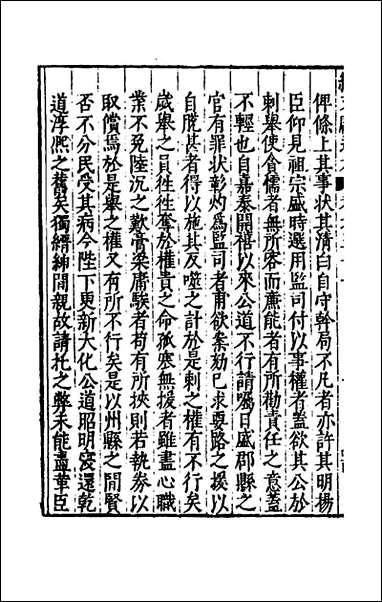 俾條上其事狀其清白自守幹局不凡者亦許其明揚
臣仰見祖宗盛時選用監司付以事權者蓋欲其公於
刺舉使貪懦者無所容而亷能者有所勸責任之意蓋
不輕也自嘉泰開禧以來公道不行請囑日盛郡縣之
官有罪狀彰灼爲監司者甫欲案劾已求要路之援以
自脫甚者得以施其反噬之計於是刺之權有不行矣
歲舉之員徃徃奪於權貴之命孤寒無援者雖盡心職
業不免陸沉之歎膏梁庸騃者苟有所挾則若執劵以
取償焉於是舉之權又有所不行矣是以州縣之間賢
否不分民受其病今陛下更新大化公道昭明寖還乾
道淳熈之舊矣獨縉紳間親故請托之弊未能盡革臣